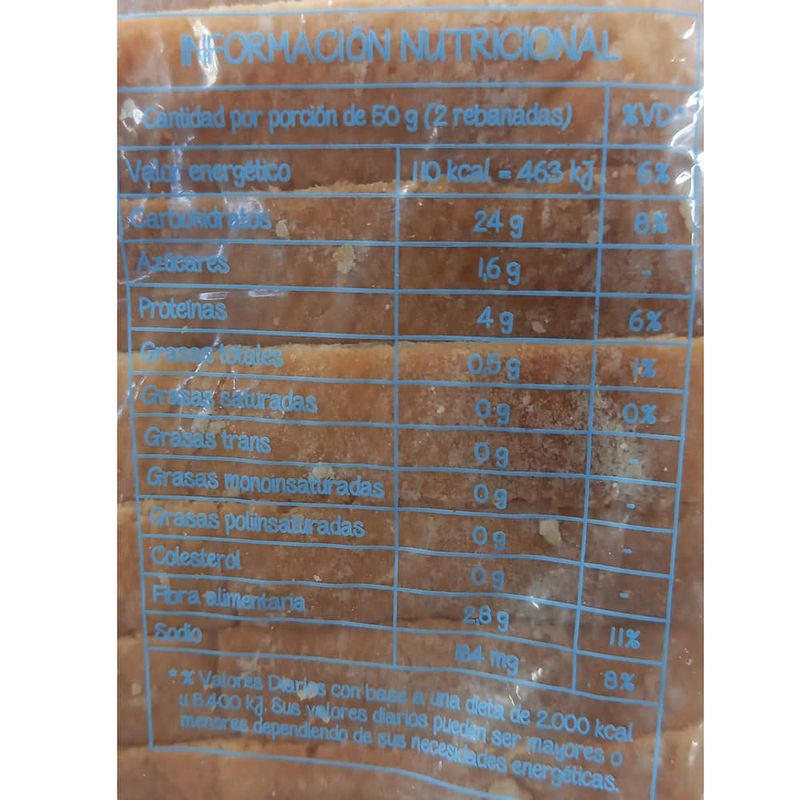 INFORMACIÓN NUTRICIONAL
Cantidad por porción de 50 g (2 rebanadas) %VD*
Valor energético 110 kcal = 463 kJ 6%
Carbohidratos 24 g 8%
Azúcares 1,6 g -
Proteínas 4 g 6%
Grasas totales 0,5 g 1%
Grasas saturadas 0 g 0%
Grasas trans 0 g -
Grasas monoinsaturadas 0 g -
Grasas poliinsaturadas 0 g -
Colesterol 0 g -
Fibra alimentaria 2,8 g 11%
Sodio 184 mg 8%
* % Valores Diarios con base a una dieta de 2.000 kcal
u 8.400 kJ. Sus valores diarios pueden ser mayores o
menores dependiendo de sus necesidades energéticas.